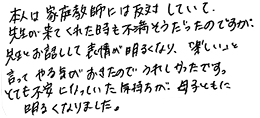 本人は家庭教師には反対していて、
先生が来てくれた時も不満そうだったのですが、
先生とお話しして表情が明るくなり、「楽しい」と
言ってやる気がおきたのでうれしかったです。
とても不安になっていた気持ちが、母子ともに
明るくなりました。